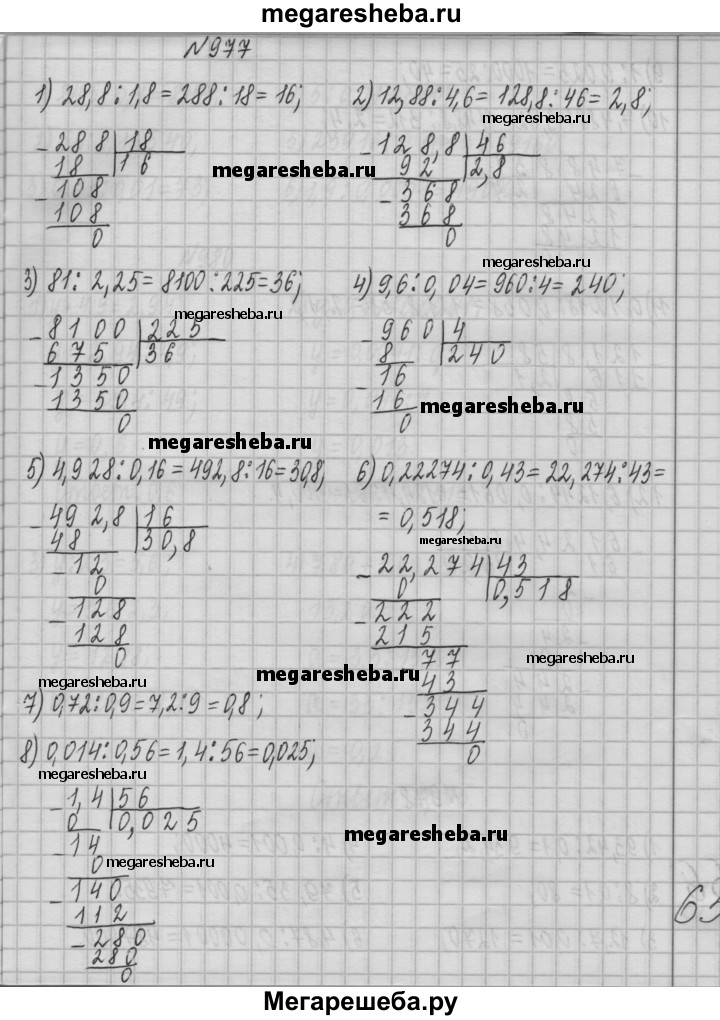 megaresheba.ru
№977
1) 28,8:1,8=288:18=16; 2) 12,88:4,6=128,8:46=2,8;
-288|18 -128,8|46
18 |16 megaresheba.ru 92 |2,8
-108 -368
108 368
0 0
megaresheba.ru
3) 81:2,25=8100:225=36; 4) 9,6:0,04=960:4=240;
megaresheba.ru
-8100|225 -960|4
675 |36 8 |240
-1350 -16
1350 16 megaresheba.ru
0 0
megaresheba.ru
5) 4,928:0,16=492,8:16=30,8; 6) 0,22274:0,43=22,274:43=
-492,8|16 =0,518;
48 |30,8 megaresheba.ru
-12 -22,274|43
0 0 |0,518
-128 -222
128 215
0 -77 megaresheba.ru
megaresheba.ru megaresheba.ru 43
7) 0,72:0,9=7,2:9=0,8; -344
344
8) 0,014:0,56=1,4:56=0,025; 0
megaresheba.ru
-1,4|56
0 |0,025 megaresheba.ru
-14
0 megaresheba.ru
-140
112 63
-280
280
0
Мегарешеба.ру